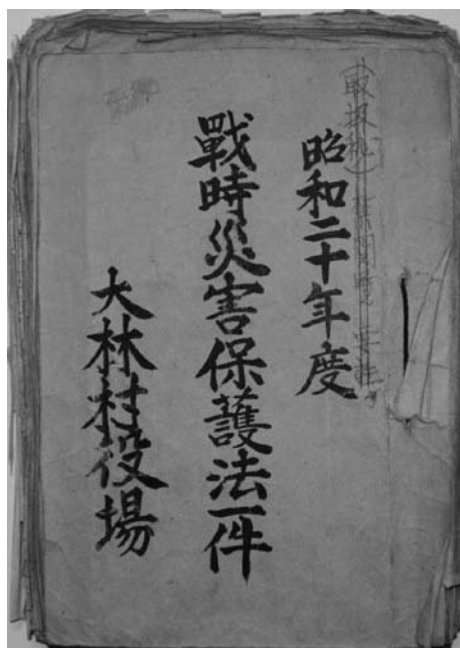 昭和二十年度
戰時災害保護法一件
大林村役場